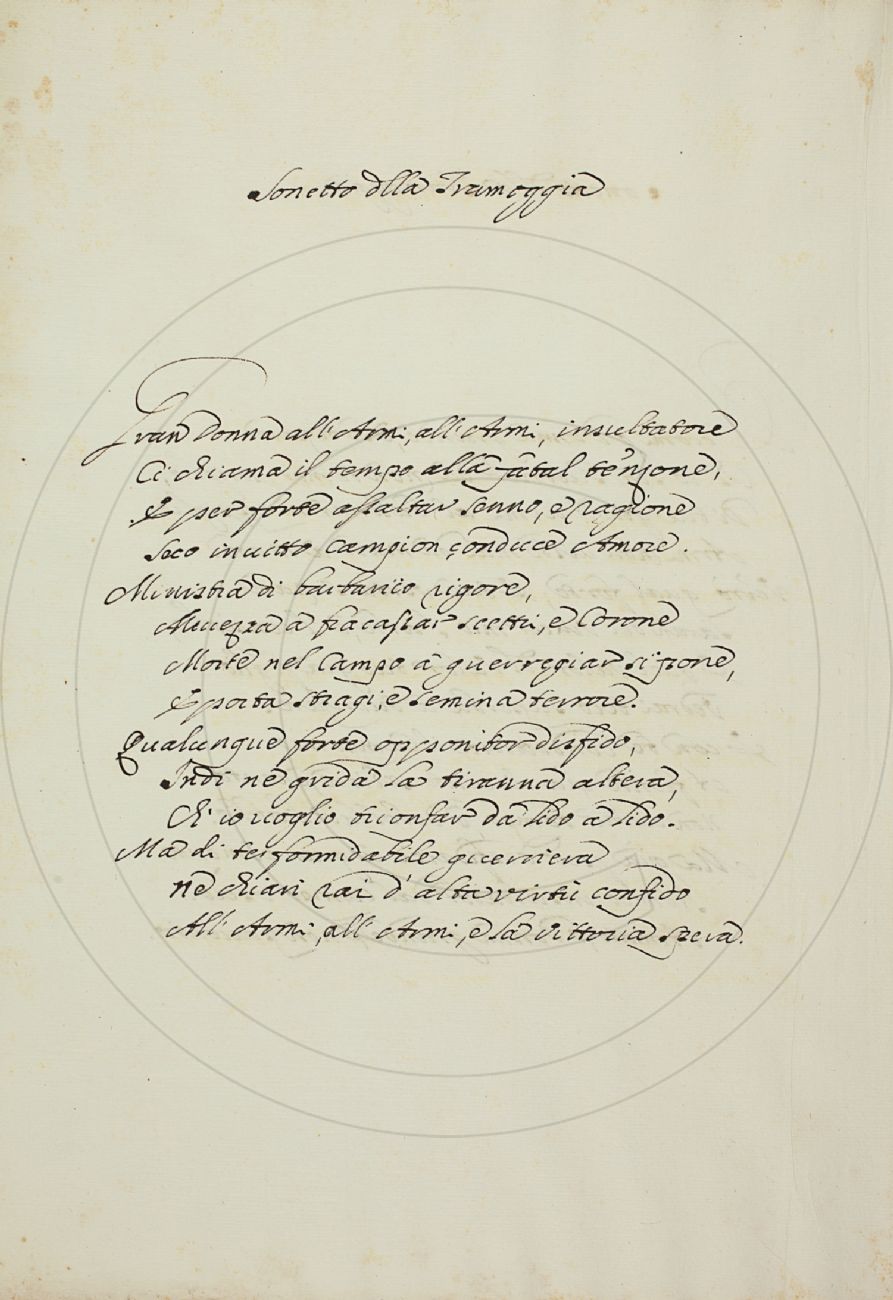 Sonetto dlla Trameggia
Gran Donna all'Armi, all'Armi, insultatore
Ci chiama il tempo alla fatal tenzone,
E per forte assaltar senno, e ragione
Seco invitto Campion conduce Amore.
Ministra di barbarico rigore,
Avvezza a fracassar scettri, e Corone
Morte nel Campo à guerregiar si pone,
E porta stragi, e semina terrore.
Qualunque forte opponitor disfido,
Indi ne grida la tiranna altera,
Ch'io voglio trionfar da lido a lido.
Ma di te formidabile guerriera
ne chiari rai d'alta virtù confido
All'Armi, all'Armi, e la vittoria spera.